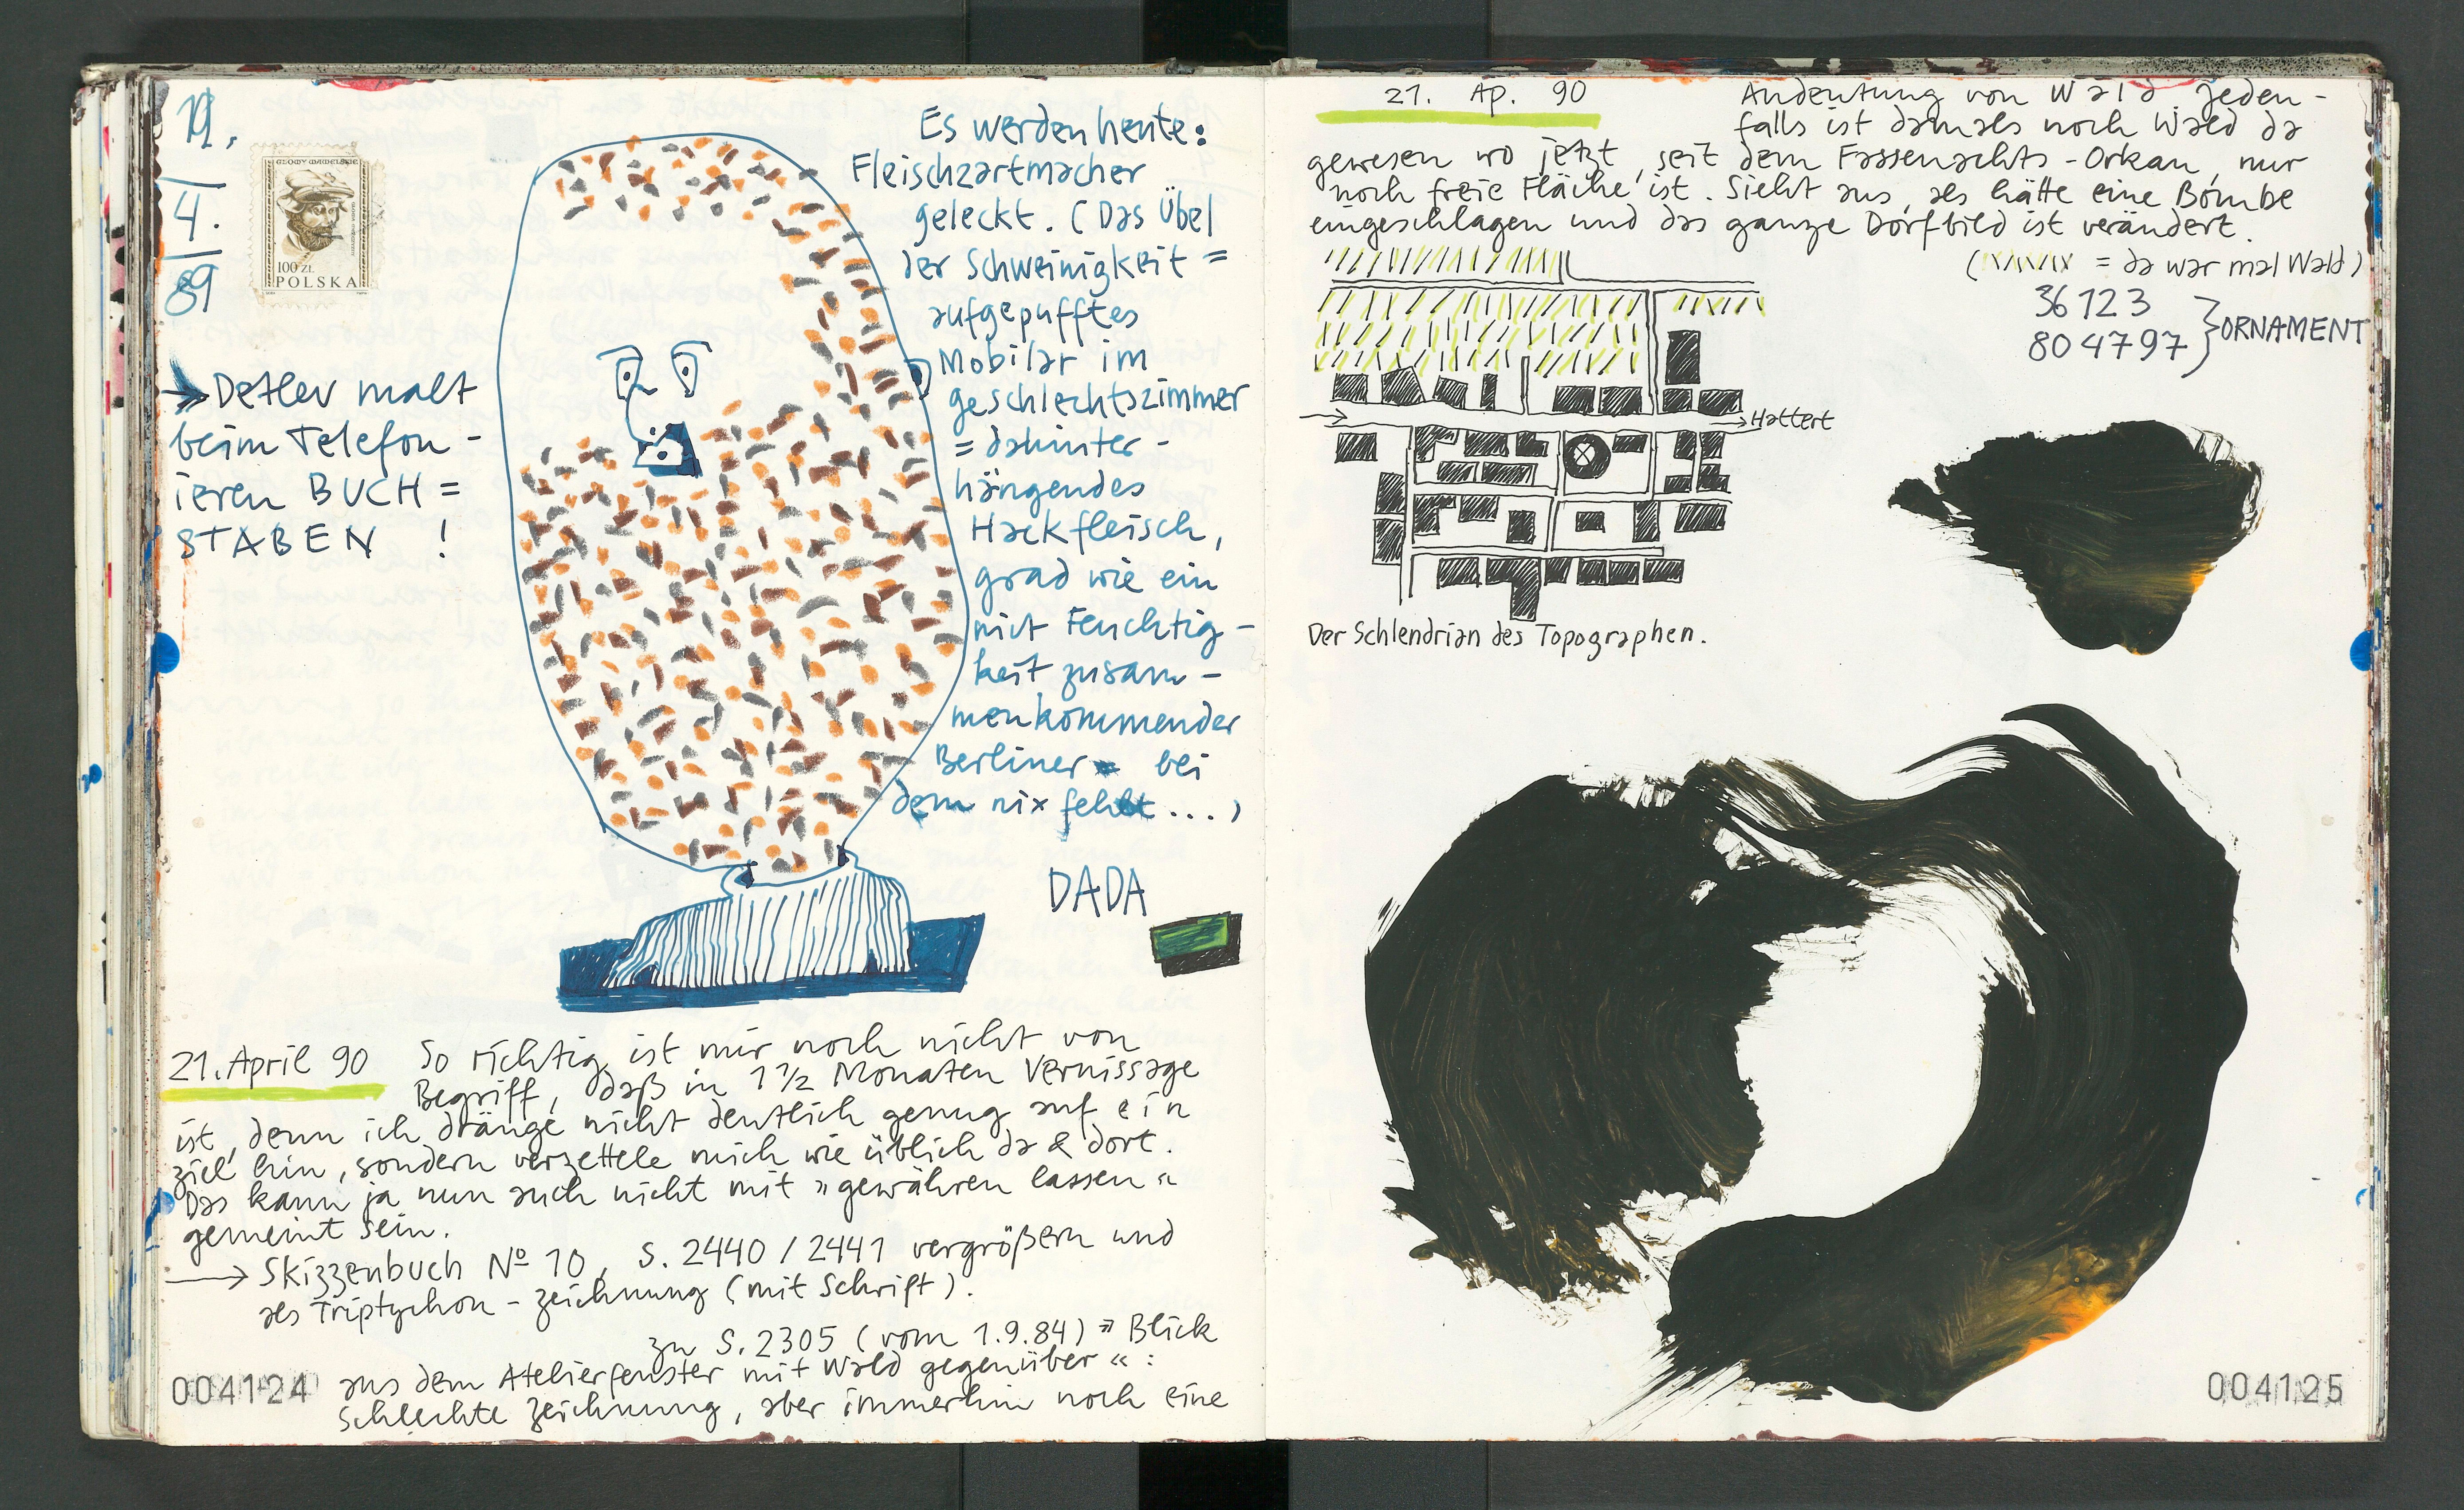 19.
4.
89
GŁOWY WAWELSKIE
100 ZŁ
POLSKA
→ Detlev malt
beim Telefon-
ieren BUCH=
STABEN !
Es werden heute:
Fleischzartmacher
geleckt. (Das Übel
der Schweinigkeit =
aufgepufftes
Mobilar im
geschlechtszimmer
= dahinter-
hängendes
Hackfleisch,
grad wie ein
mit Feuchtig-
keit zusam-
menkommender
Berliner bei
dem nix fehlt...)
DADA
21. April 90 So richtig ist mir noch nicht von
Begriff, daß in 1 1/2 Monaten Vernissage
ist, denn ich dränge nicht deutlich genug auf ein
ziel hin, sondern verzettele mich wie üblich da & dort.
Das kann ja nun auch nicht mit »gewähren lassen«
gemeint sein.
→ Skizzenbuch No 10, S. 2440 / 2441 vergrößern und
als Triptychon-zeichnung (mit Schrift).
zu S. 2305 (vom 1.9.84) »Blick
aus dem Atelierfenster mit Wald gegenüber«:
schlechte zeichnung, aber immerhin noch eine
004124
21. Ap. 90 Andeutung von Wald. Jeden-
falls ist damals noch Wald da
gewesen wo jetzt, seit dem Fassenachts-Orkan, nur
noch freie Fläche ist. Sieht aus, als hätte eine Bombe
eingeschlagen und das ganze Dorfbild ist verändert.
( = da war mal Wald)
36123
804797 } ORNAMENT
→ Hattert
Der Schlendrian des Topographen.
004125